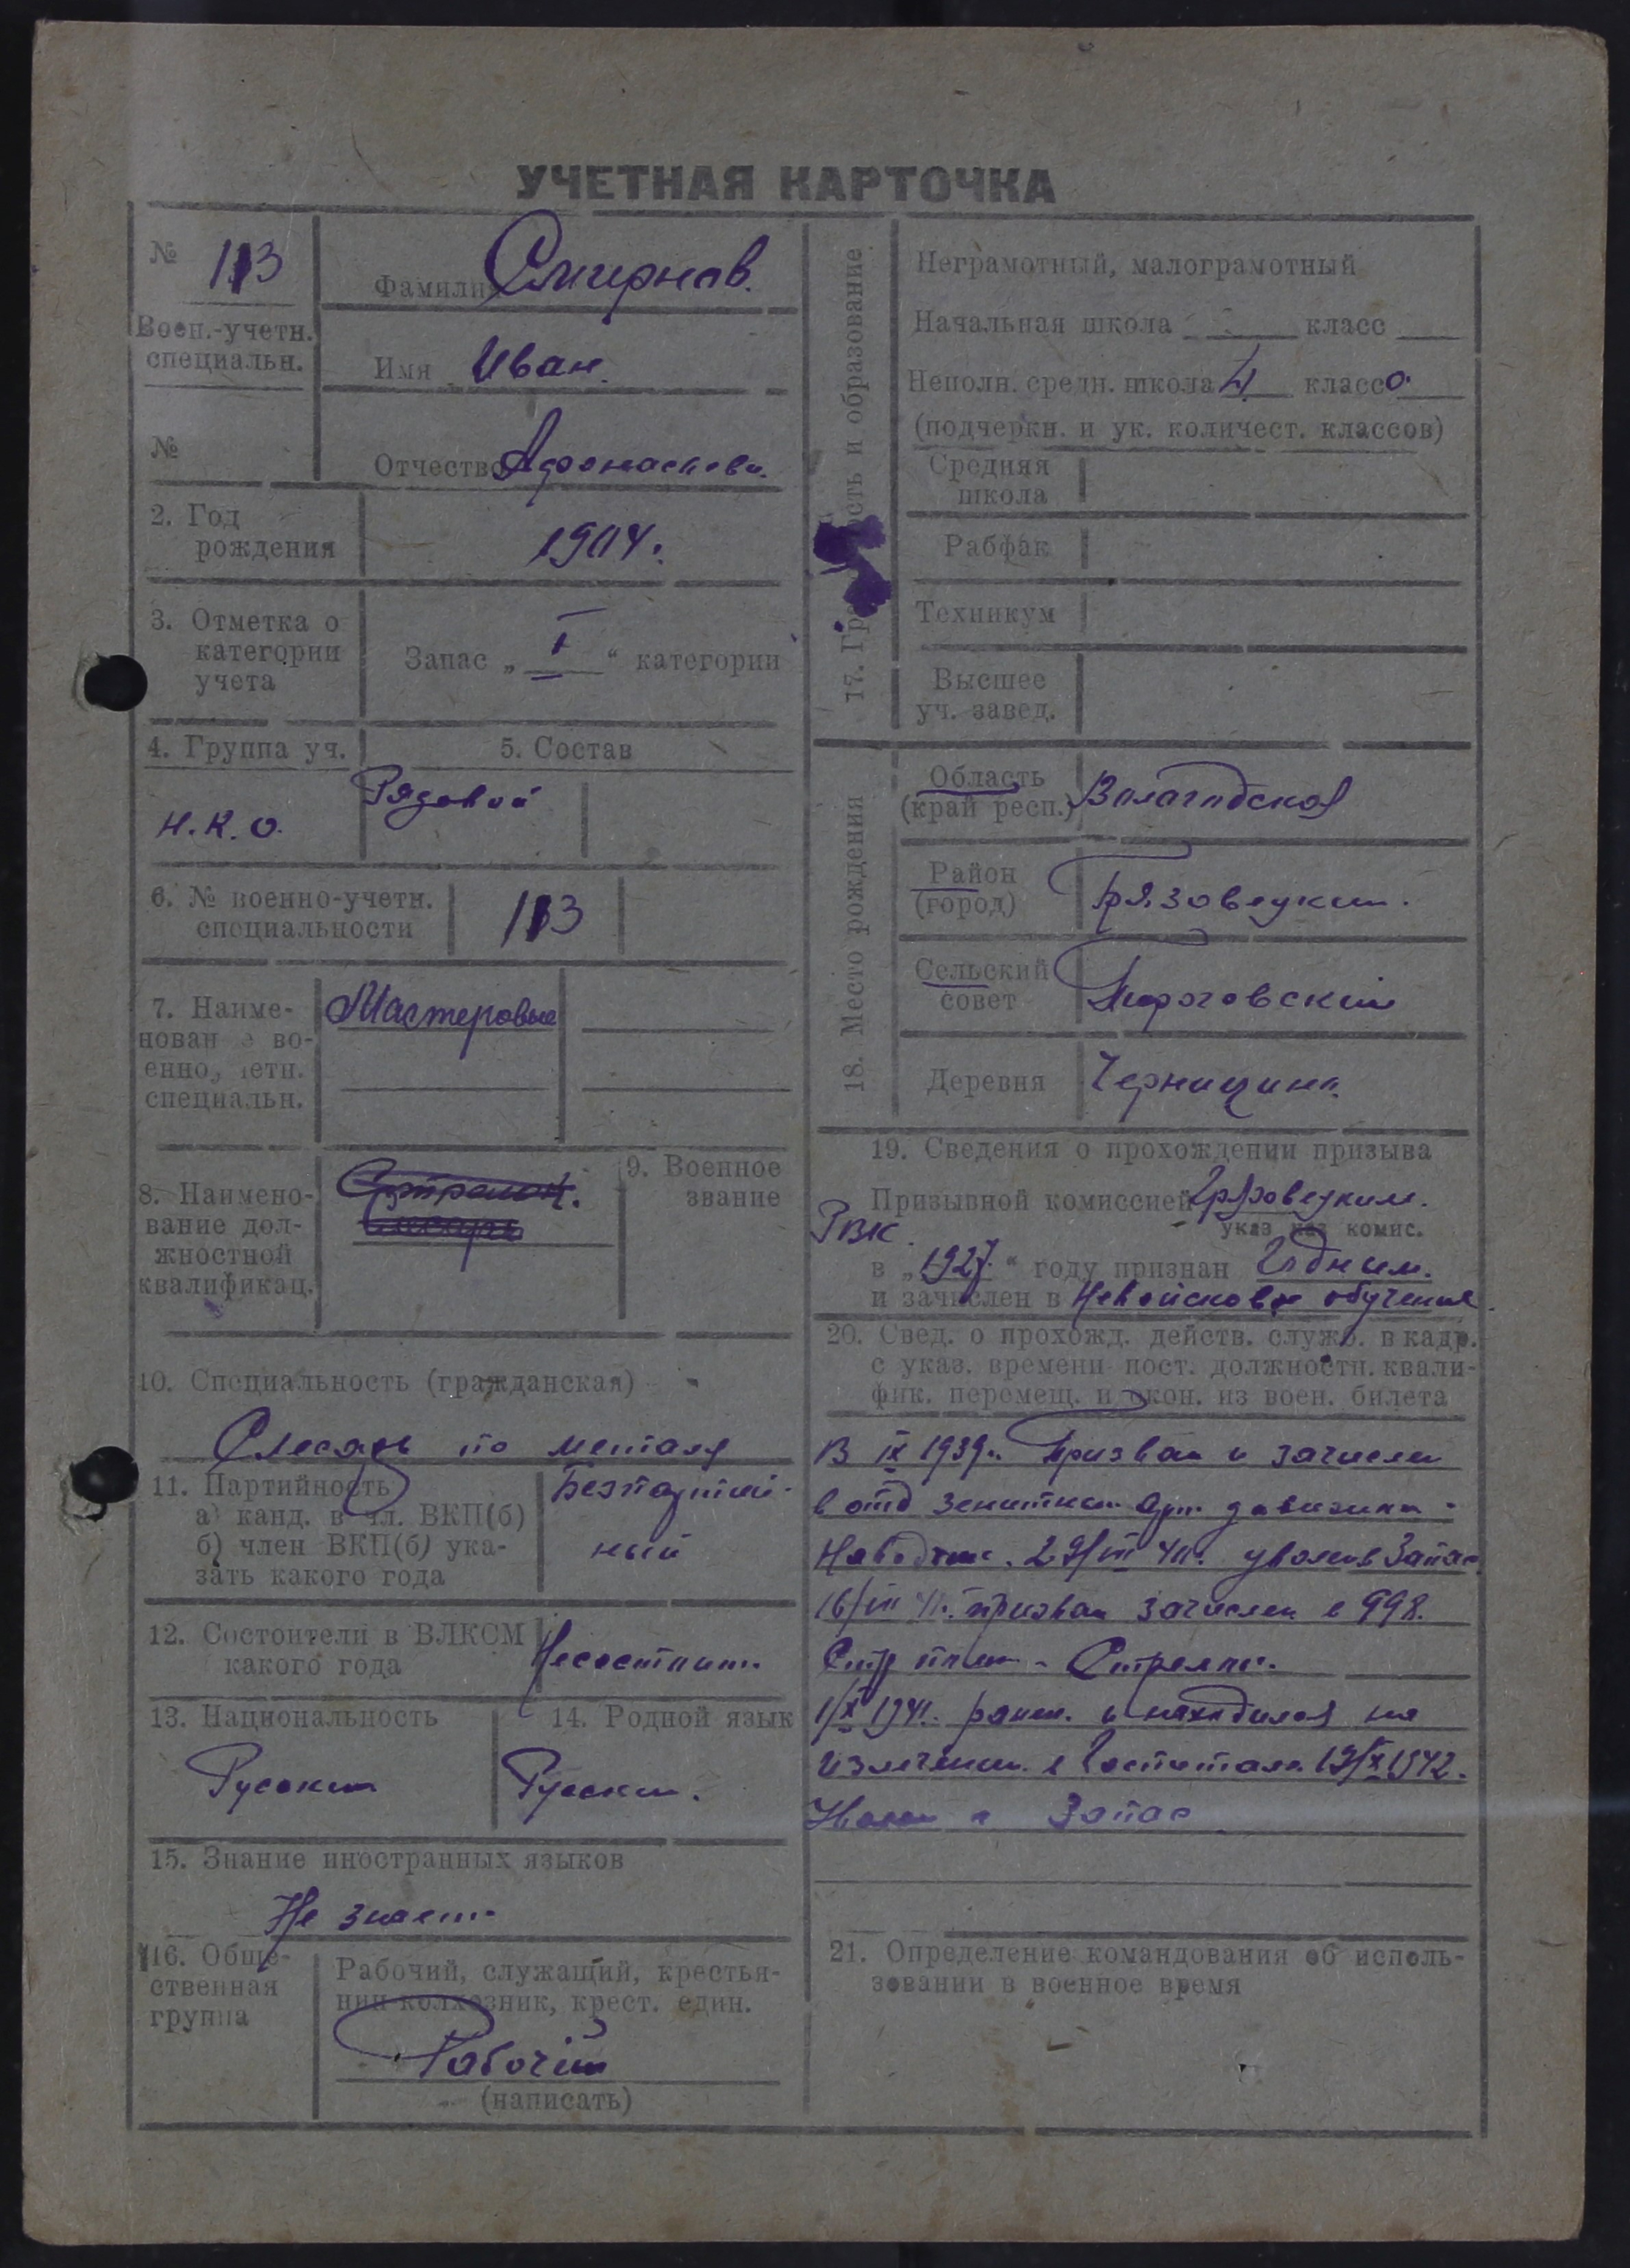 УЧЕТНАЯ КАРТОЧКА
№ 113
Воен.-учетн.
специальн.
№
Фамилия Смирнов.
Имя Иван.
Отчество Афонасьеви.
2. Год
рождения
1904.
3. Отметка о
категории
учета
Запас „ I “ категории
4. Группа уч.
Н.К.О.
5. Состав
Рядовой
6. № военно-учетн.
специальности
113
7. Наиме-
нован е во-
енно, четн.
специальн.
Мастеровые
8. Наимено-
вание дол-
жностной
квалификац.
9. Военное
звание
10. Специальность (гражданская)
Слесарь по металу
11. Партийность
а) канд. в чл. ВКП(б)
б) член ВКП(б) ука-
зать какого года
Безпартий-
ный
12. Состоит ли в ВЛКСМ
какого года
Несостоит.
13. Национальность
Русский
14. Родной язык
Русский.
15. Знание иностранных языков
Не знает
16. Обще-
ственная
группа
Рабочий, служащий, крестья-
нин-колхозник, крест. един.
Рабочий
(написать)
17. Гр ость и образование
Неграмотный, малограмотный
Начальная школа класс
Неполн. средн. школа 4 класса
(подчеркн. и ук. количест. классов)
Средняя
школа
Рабфак
Техникум
Высшее
уч. завед.
18. Место рождения
Область
(край респ.)
Вологодская
Район
(город)
Грязовецкий.
Сельский
совет
Пироговский
Деревня
Черницино.
19. Сведения о прохождении призыва
Призывной комиссией Грязовецким.
РВК. указ наз комис.
в „1927.“ году признан Годным.
и зачислен в Невойсковое обучение.
20. Свед. о прохожд. действ. служб. в кадр.
с указ. времени пост. должностн. квали-
фик. перемещ. и окон. из воен. билета
В IX 1939г. Призван и зачислен
в отд зенитный арт. дивизион -
Наводчик. 29/VIII 40. уволен в Запас
16/VII 41. призван зачислен в 998.
Стр полк - Стрелок.
1/X 1941. ранен. и находился на
излечении в Госпитале. 19/X 1942.
Уволен в Запас
21. Определение командования об исполь-
зовании в военное время